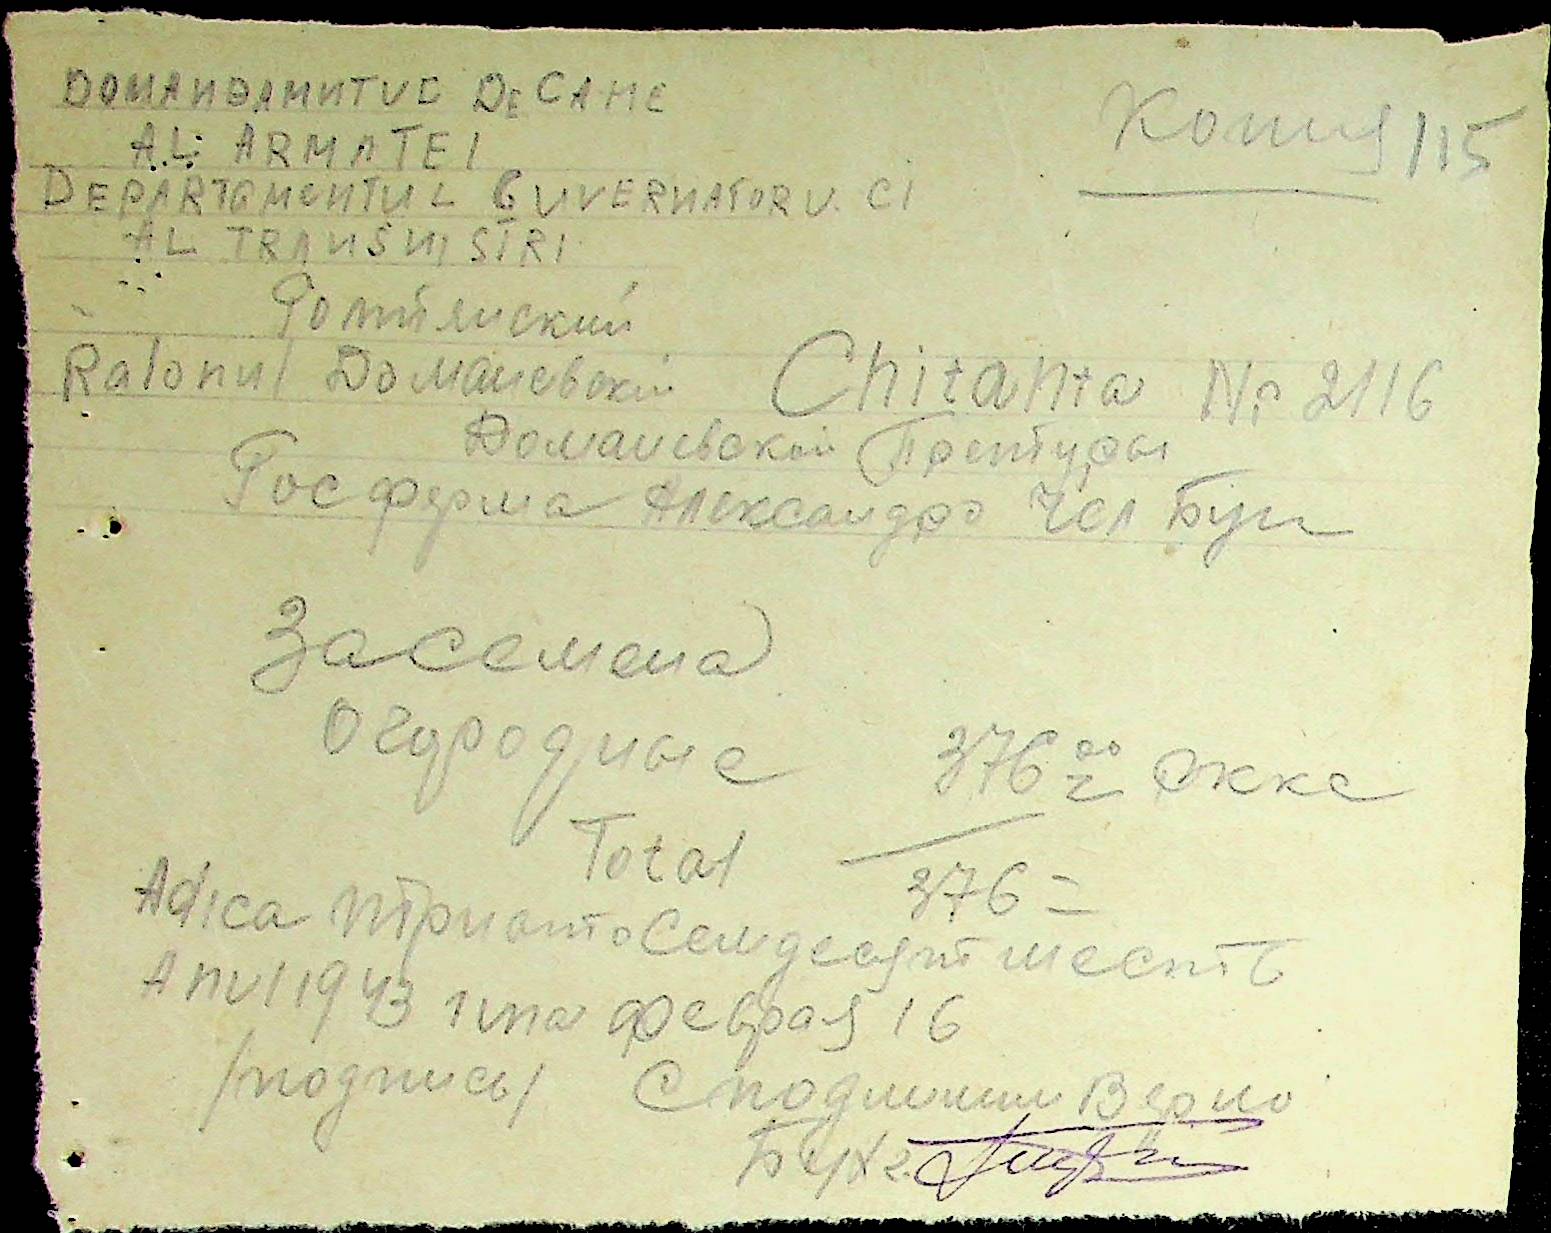 DOMANDAMNTUL DE CAME
AL ARMATEI
Копия 115
DEPARTAMENTUL GUVERNATORULCI
AL TRANSNISTRI
Голтянский
Raionul Доманевский Chitanta Nr 2116
Доманевской Претуры
Госферма Александро Чел Буг
За семена
Огородные 376 00 Окке
Total 376 =
Adica триста Семдесят шесть
Anul 1943 февраля 16
/подпись/ С подлинным Верно
Бухг.